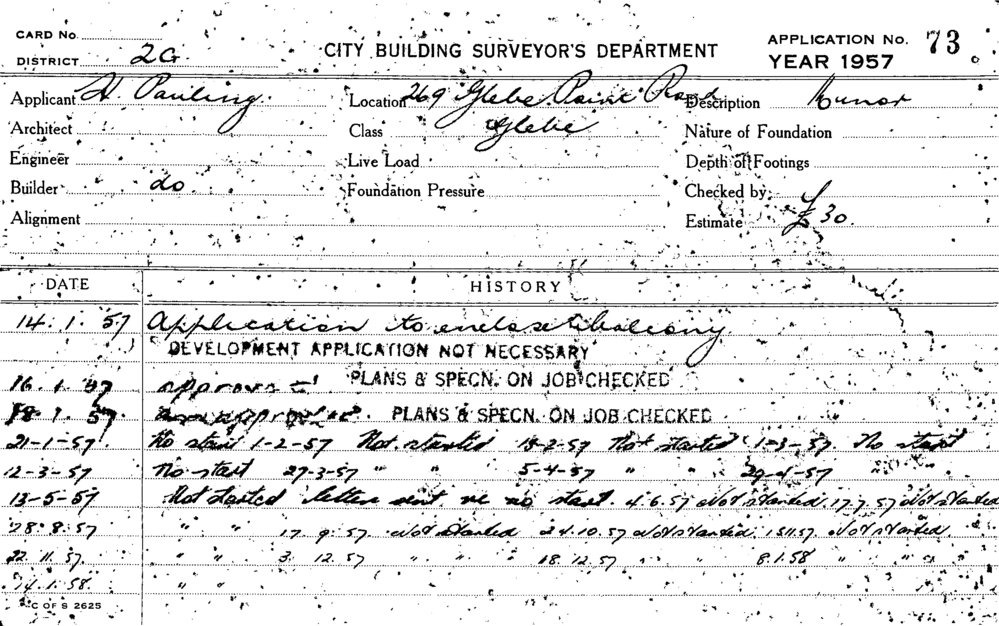 CARD No.
DISTRICT 2G
CITY BUILDING SURVEYOR'S DEPARTMENT
APPLICATION No. 73
YEAR 1957
Applicant H Pauling. Location 269 Glebe Point Road Description Minor
Architect Class Glebe Nature of Foundation
Engineer Live Load Depth of Footings
Builder do Foundation Pressure Checked by
Alignment Estimate £30.
DATE HISTORY
14.1.57 Application to enclose balcony
DEVELOPMENT APPLICATION NOT NECESSARY
16.1.57 approved PLANS & SPECN. ON JOB CHECKED
18.1.57 PLANS & SPECN. ON JOB CHECKED
21-1-57. No start 1-2-57 Not started 18-2-57 Not started 1-3-57. No start
12-3-57 No start 27-3-57 " " 5-4-57 " " 29-4-57
13-5-57 Not started letter sent re no start. 4.6.57 Not Started. 17.7.57 Not Started
28.8.57 " " 17.9.57. Not Started 24.10.57 Not Started. 15.11.57. Not Started.
22.11.57 " " 3.12.57 " " 18.12.57 " " 8.1.58 " "
14.1.58. " "
C OF S 2625